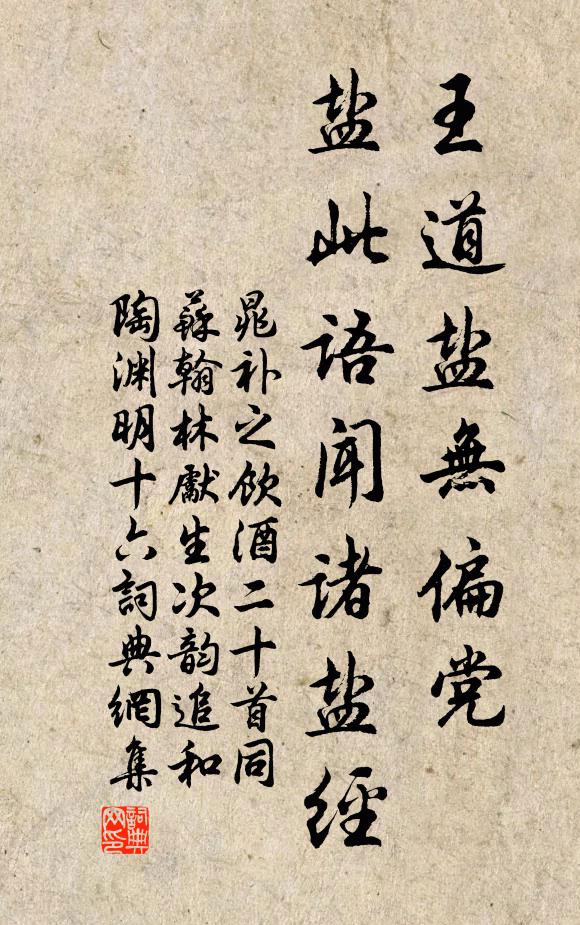 王道盐無偏党
盐此語聞诸盐經
晁补之饮酒二十首同
蘇翰林獻生次韵追和
陶渊明十六詞典網集
詞典网印